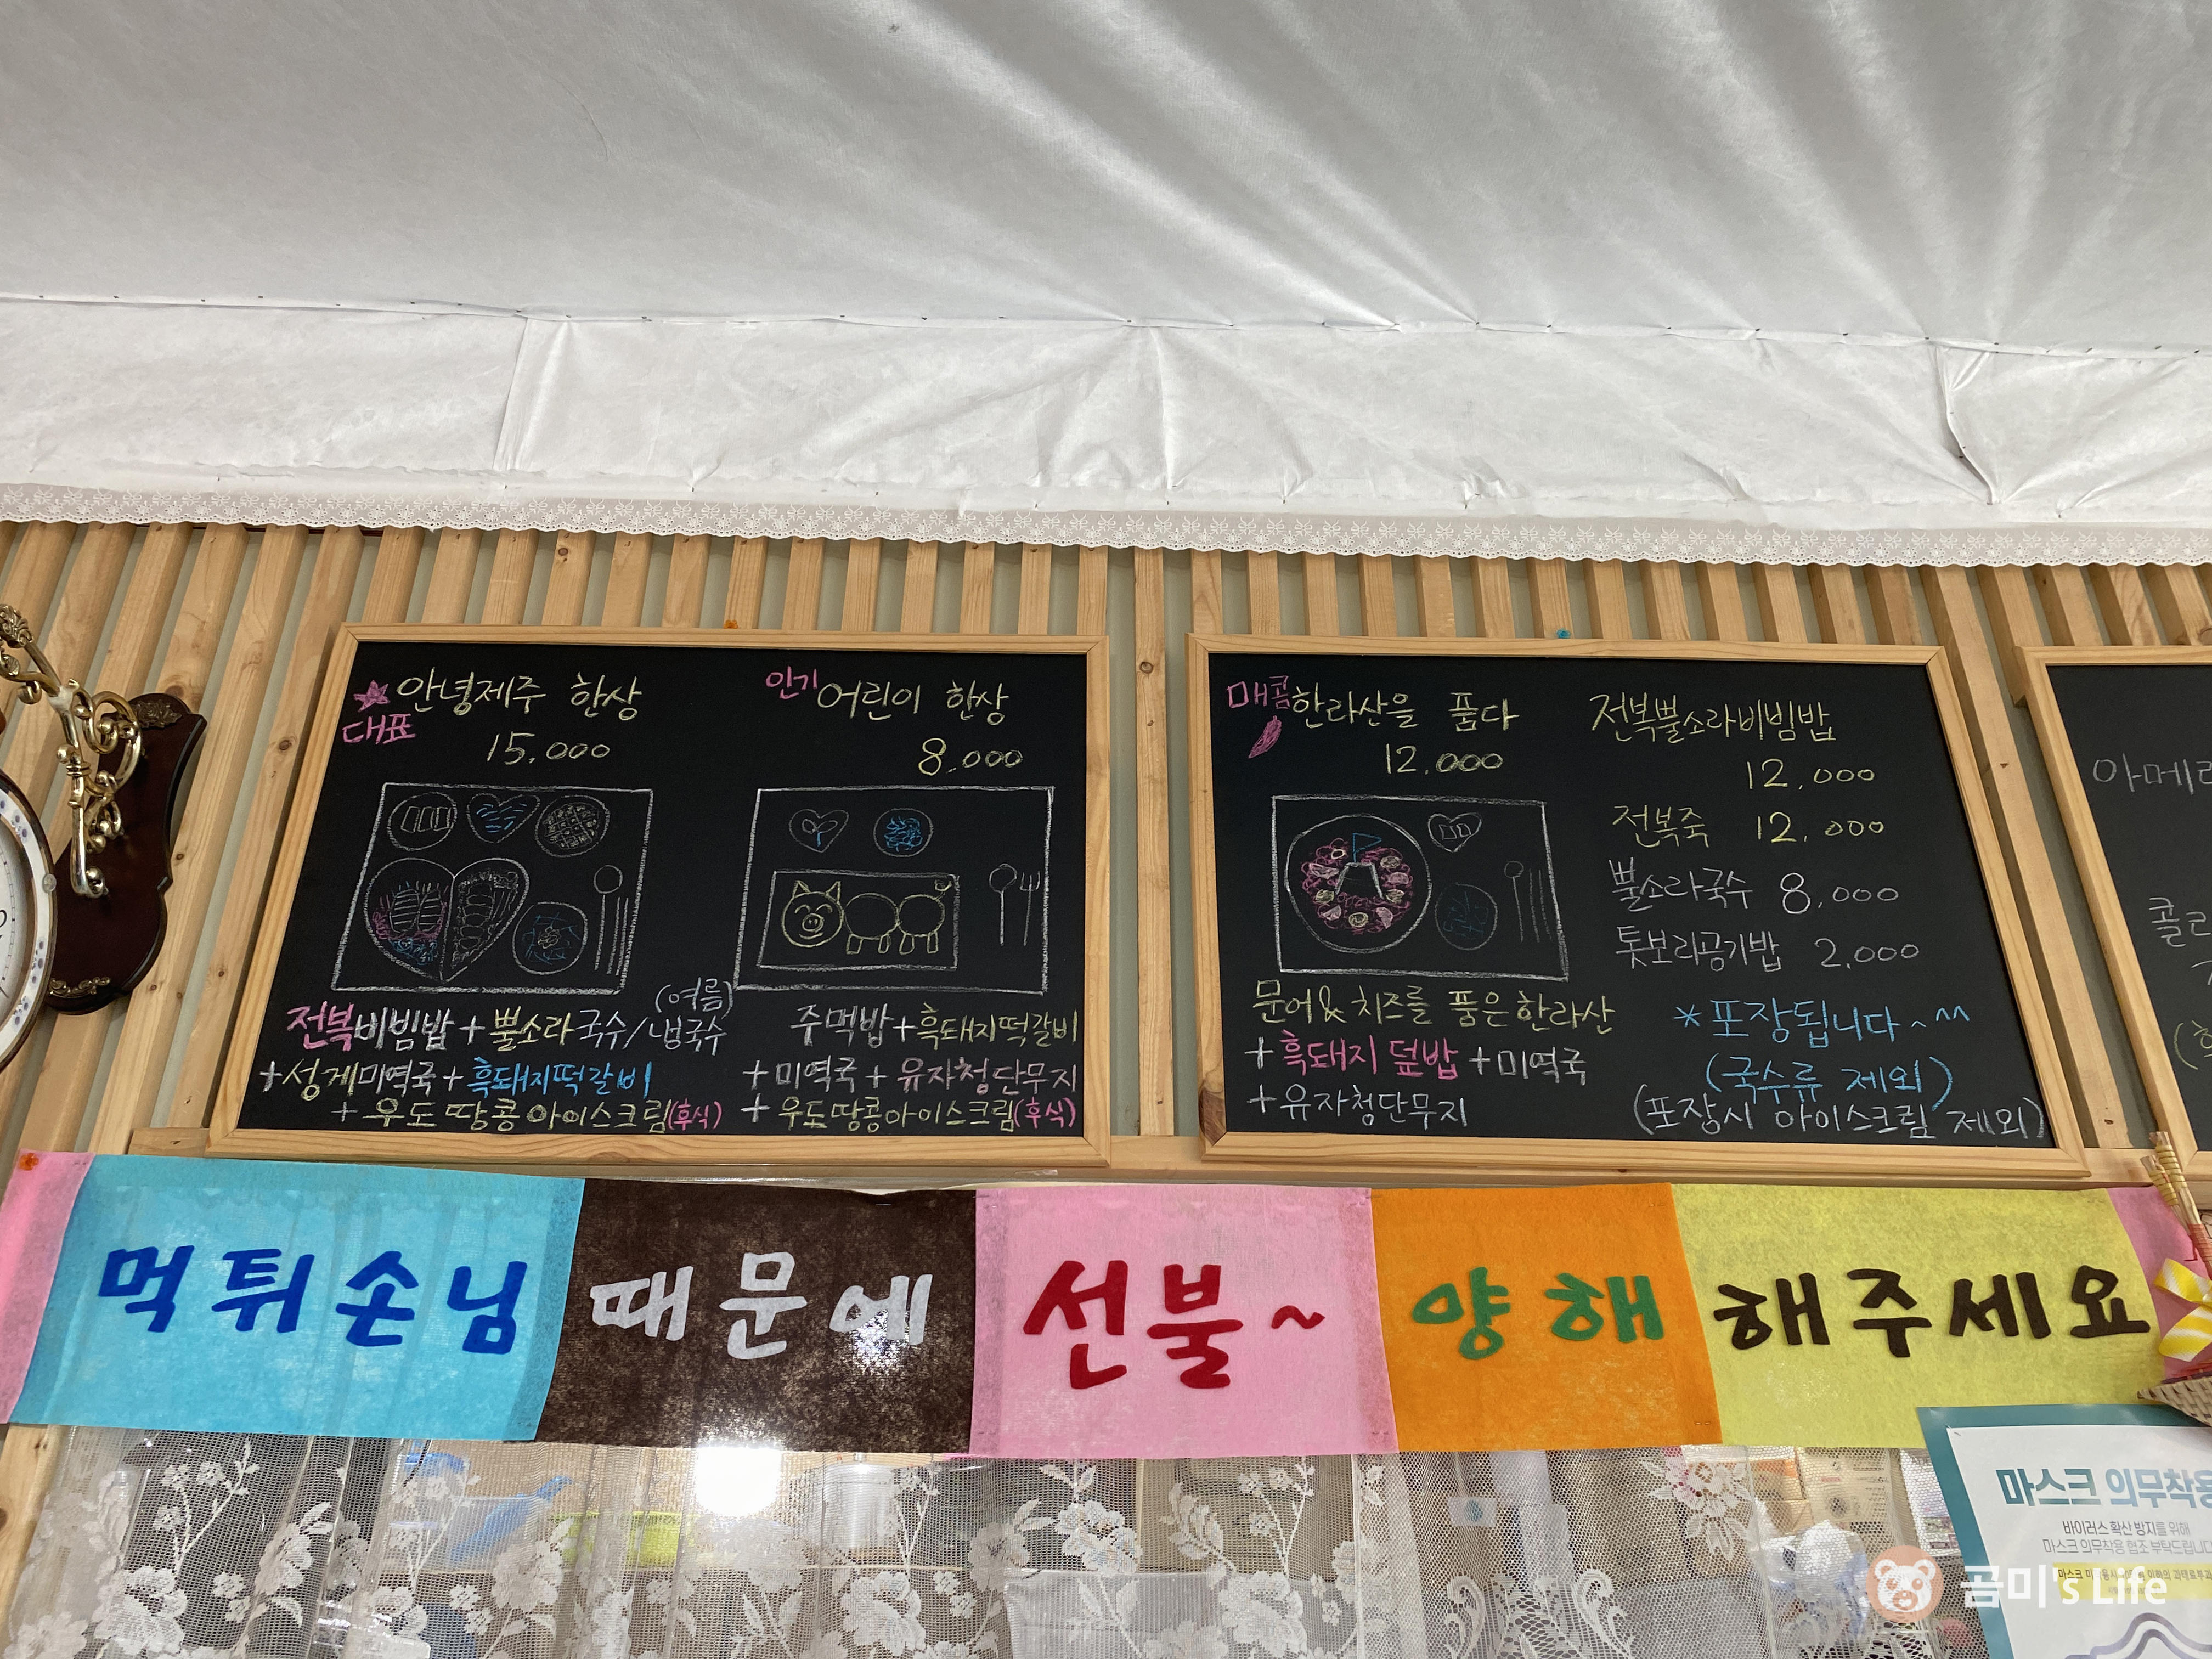 ★ 안녕제주 한상
대표
15,000
(여름)
전복비빔밥 + 뿔소라국수/냉국수
+ 성게미역국 + 흑돼지떡갈비
+ 우도 땅콩아이스크림(후식)
인기 어린이 한상
8,000
주먹밥 + 흑돼지떡갈비
+ 미역국 + 유자청단무지
+ 우도땅콩아이스크림(후식)
매콤 한라산을 품다
12,000
문어&치즈를 품은 한라산
+ 흑돼지 덮밥 + 미역국
+ 유자청단무지
전복뿔소라비빔밥
12,000
전복죽 12,000
뿔소라국수 8,000
톳보리공기밥 2,000
* 포장됩니다~^^
(국수류 제외)
(포장시 아이스크림 제외)
먹튀손님 때문에 선불~ 양해 해주세요
마스크 의무착용
바이러스 확산 방지를 위해
마스크 의무착용 협조 부탁드립니다
곰미's Life